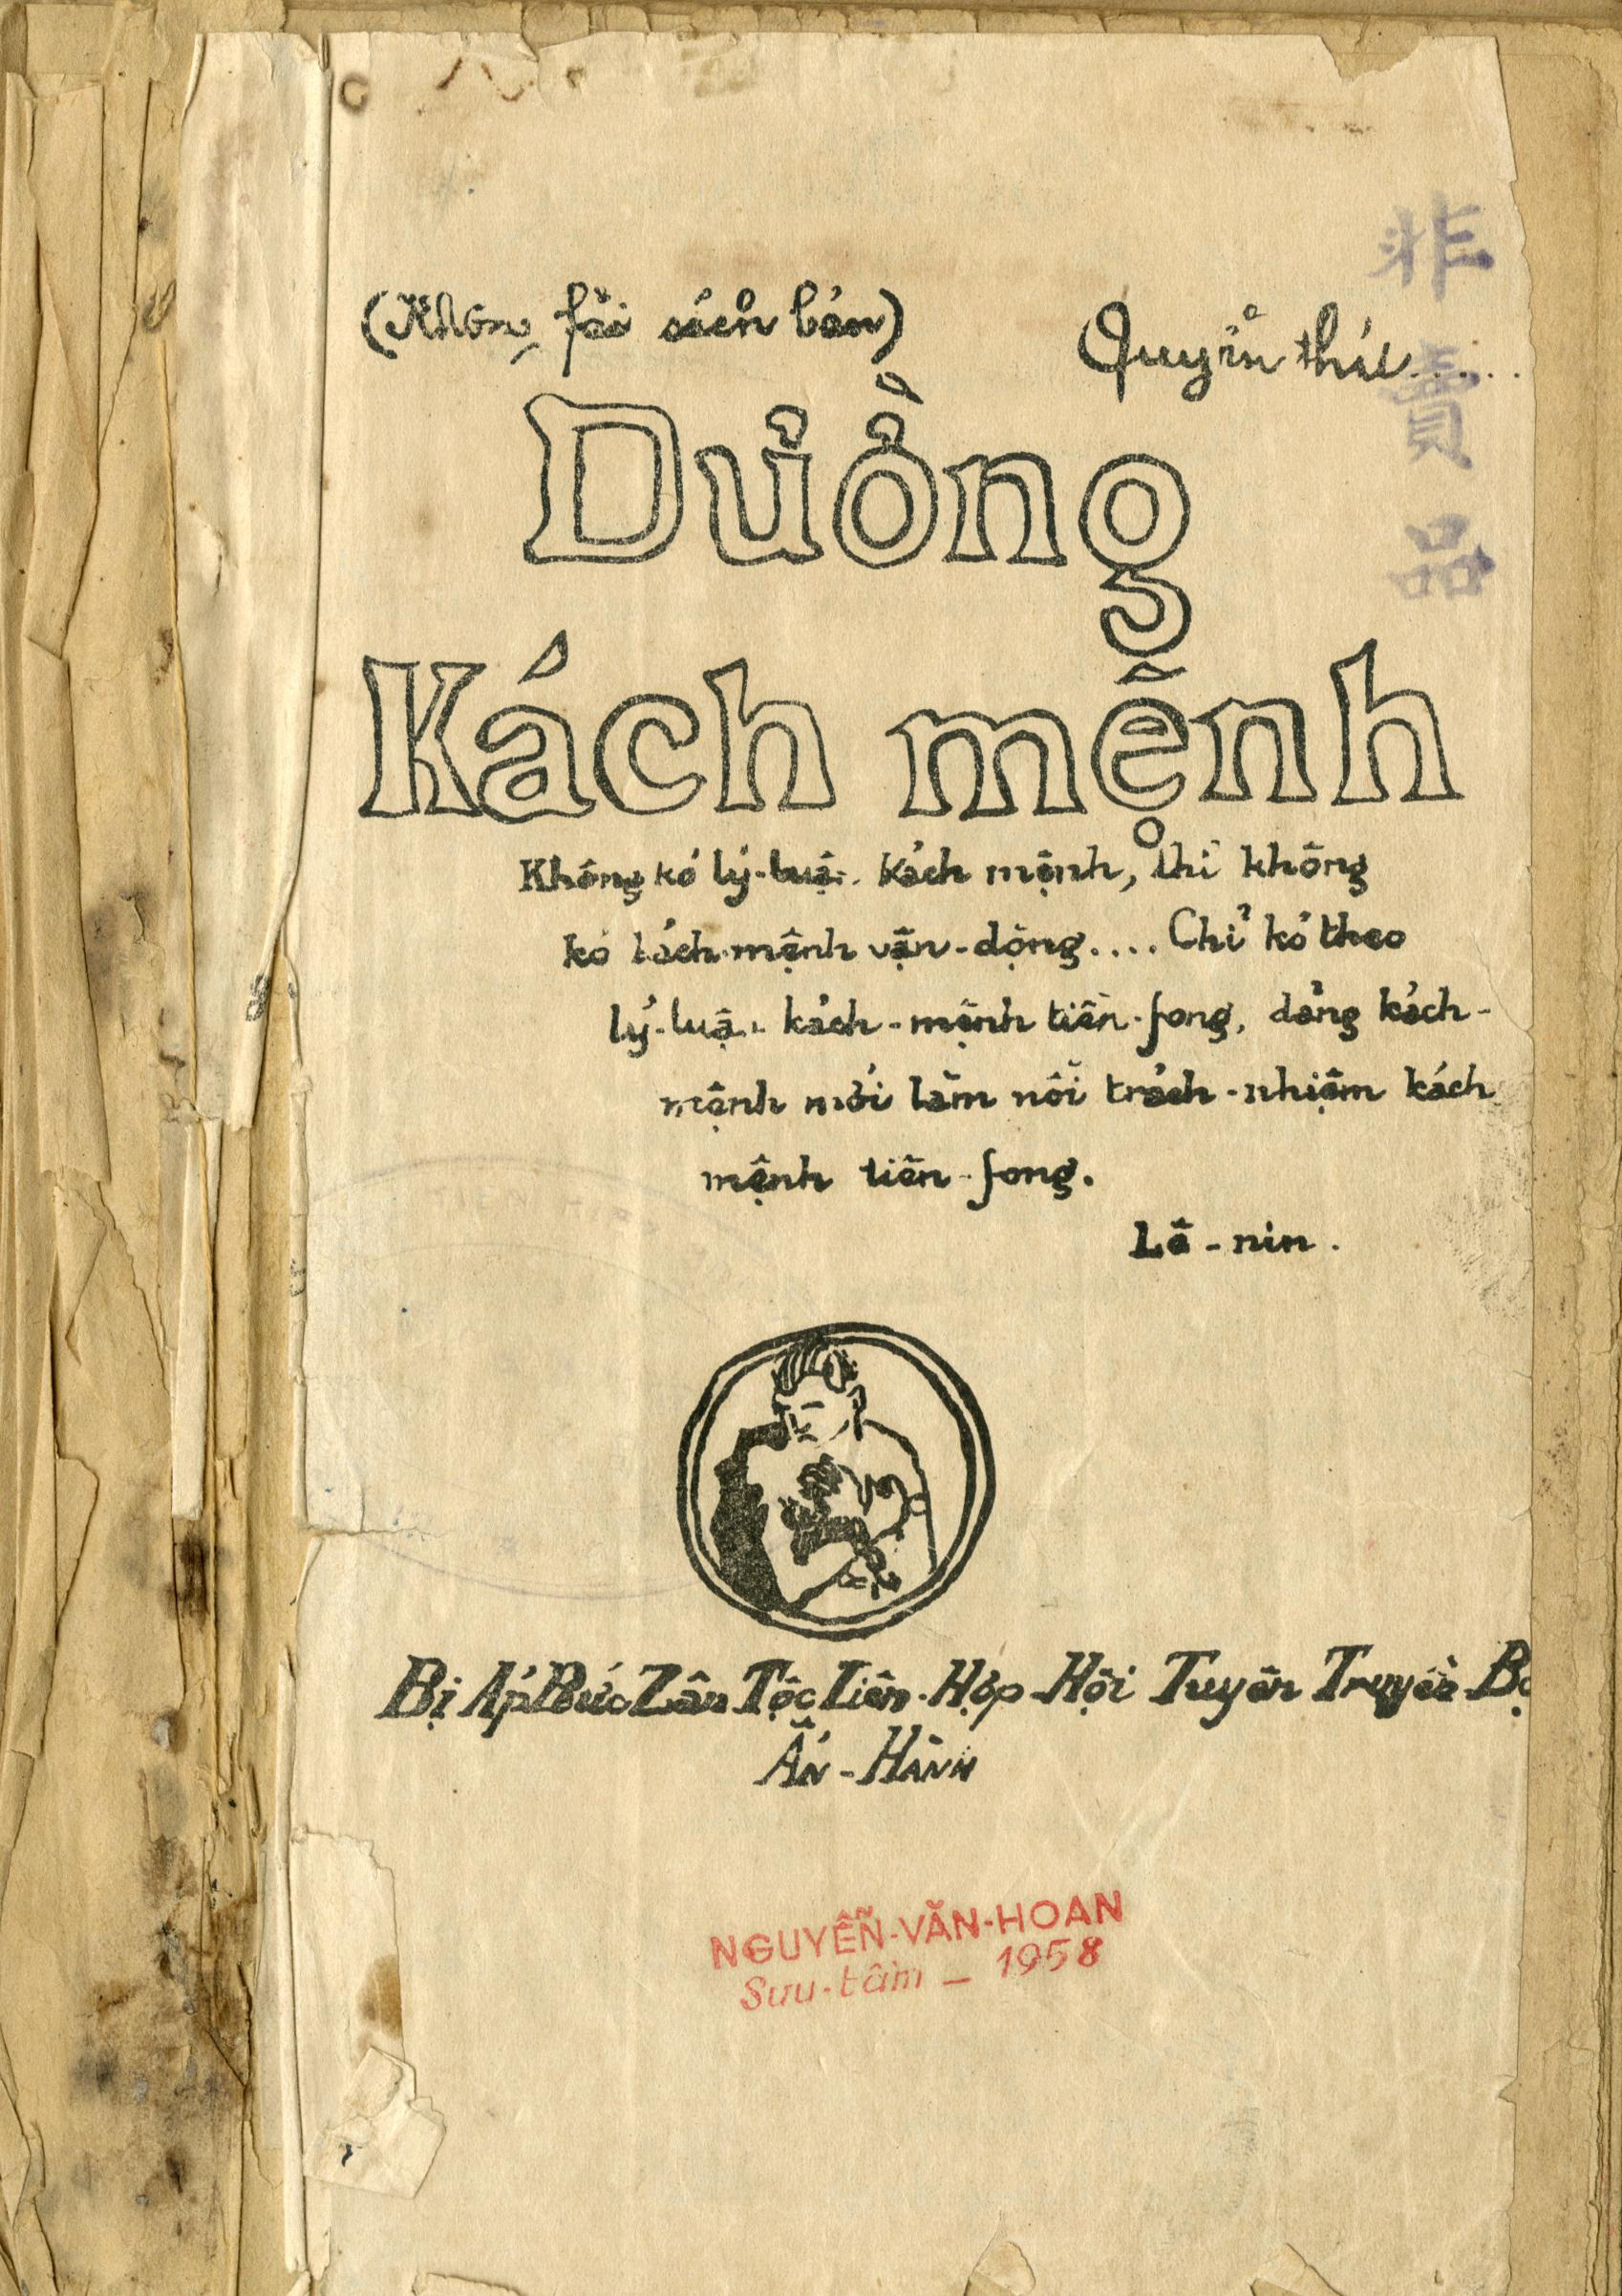 (Khôn͟g fải sách bán)
Quyển thứ.....
非賣品
Dường
Kách mệnh
Không kó lý-luận kách mệnh, thì không
kó kách mệnh vận-dộng.... Chỉ kó theo
lý-luận kách-mệnh tiền-fong, dảng kách-
mệnh mới làm nổi trách-nhiệm kách
mệnh tiền-fong.
Lê-nin.
Bị Áp Bức Zân Tộc Liên-Hợp-Hội Tuyên Truyền Bộ
Ấn-Hành
NGUYỄN-VĂN-HOAN
Sưu-tầm – 1958